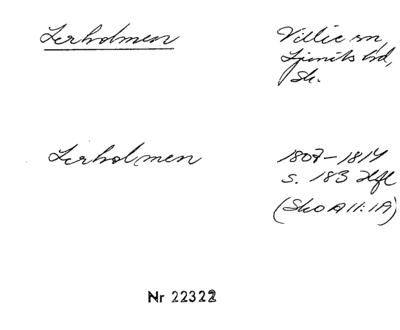 Lerholmen
Villie sn,
Ljunits hd,
Sk.
Lerholmen
1807-1814
s. 183 Hfl
(Sko A II:1A)
Nr 22322